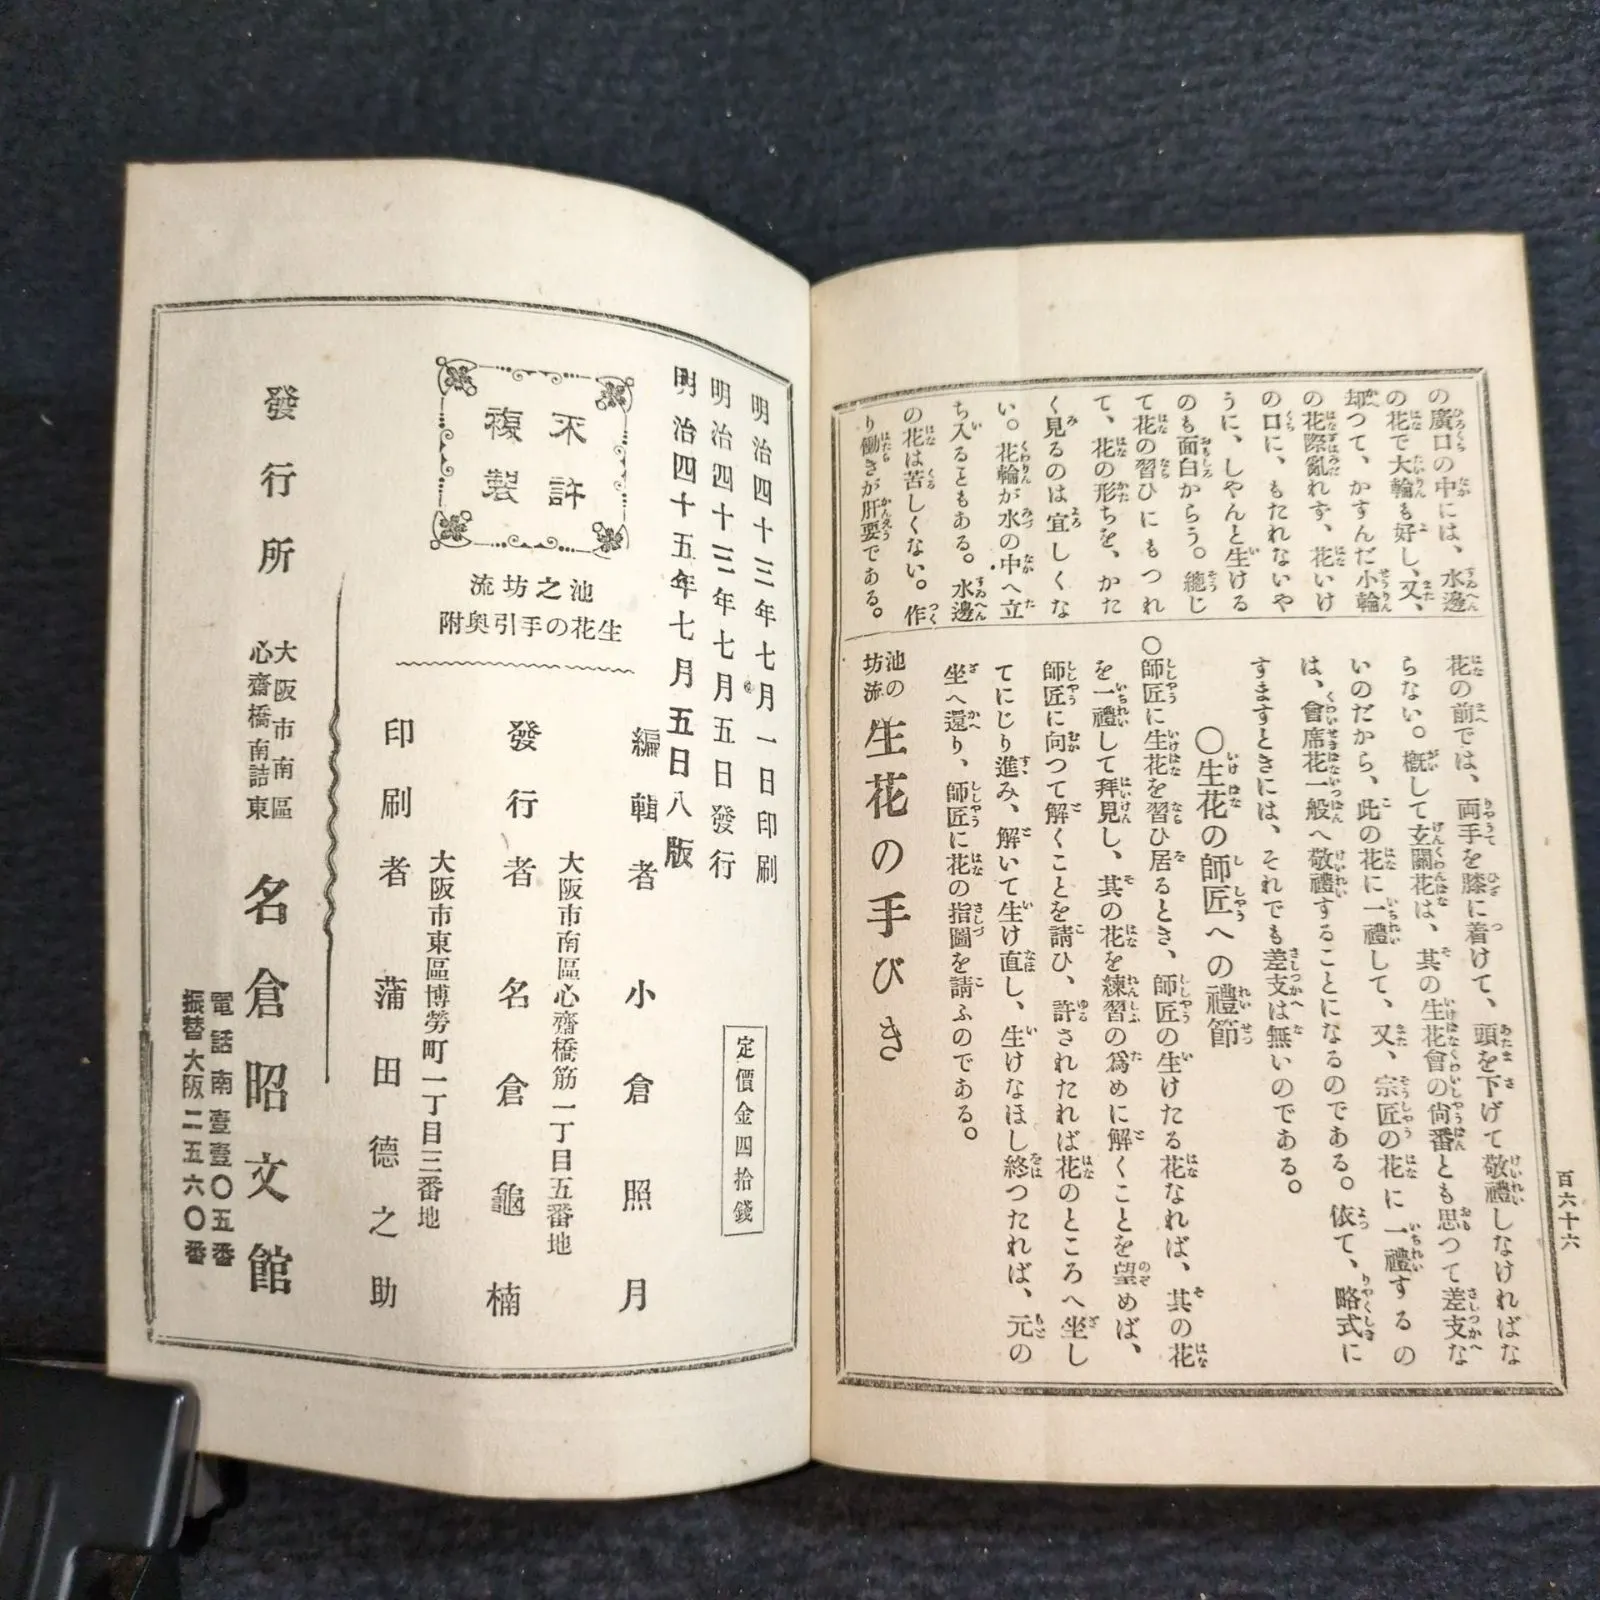 の廣口の中には、水邊
の花で大輪も好し、又、
却つて、かすんだ小輪
の花際亂れず、花いけ
の口に、もたれないや
うに、しやんと生ける
のも面白からう。總じ
て花の習ひにもつれ
て、花の形ちを、かた
く見るのは宜しくな
い。花輪が水の中へ立
ち入るともある。水邊
の花は苦しくない。作
り働きが肝要である。
花の前では、両手を膝に着けて、頭を下げて敬禮しなければな
らない。概して玄關花は、其の生花會の尙番とも思つて差支な
いのだから、此の花に一禮して、又、宗匠の花に一禮するの
は、會席花一般へ敬禮することになるのである。依て、略式に
すますときには、それでも差支は無いのである。
〇生花の師匠への禮節
〇師匠に生花を習ひ居るとき、師匠の生けたる花なれば、其の花
を一禮して拜見し、其の花を練習の爲めに解くことを望めば、
師匠に向つて解くことを請ひ、許されたれば花のところへ坐し
てにじり進み、解いて生け直し、生けなほし終つたれば、元の
坐へ還り、師匠に花の指圖を請ふのである。
池の坊流 生花の手びき
百六十六
明治四十三年七月一日印刷
明治四十三年七月五日發行
明治四十五年七月五日八版
不許
複製
池之坊流
生花の手引奥附
定價金四拾錢
編輯者 小倉照月
大阪市南區心齋橋筋一丁目五番地
發行者 名倉龜楠
大阪市東區博勞町一丁目三番地
印刷者 蒲田德之助
發行所
大阪市南區
心齋橋南詰東
名倉昭文館
電話南壹壹〇五番
振替大阪二五六〇番